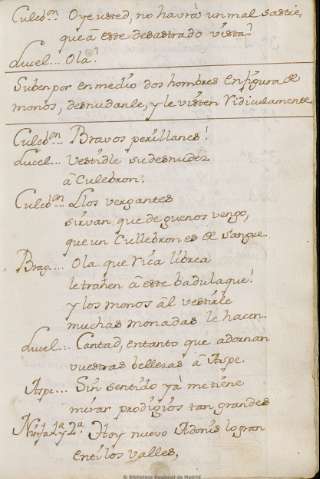 Culeb.n Oye usted, no havrá un mal sastre,
que á este desastrado vista?
Lucel... Ola.
Suben por en medio dos hombres en figura de
monos, desnudanle, y le visten ridiculamente.
Culeb.on Bravos perillanes!
Lucel... Vestidle su desnudez
á Culebron.
Culeb.on Llos vergantes
sirvan, que de guenos vengo,
que un Cullebron es de sangre.
Brag... Ola que rica librea
le trahen á este badulaque!
y los monos àl vestirle
muchas monadas le hacen.
Lucel... Cantad, entanto que adornan
vuestras bellezas á Aspe.
Aspe... Sin sentido ya me tiene
mirar prodigios tan grandes
1ª y 2ª Hoy nuevo Adonis logran
en el los valles,
© Biblioteca Nacional de Madrid